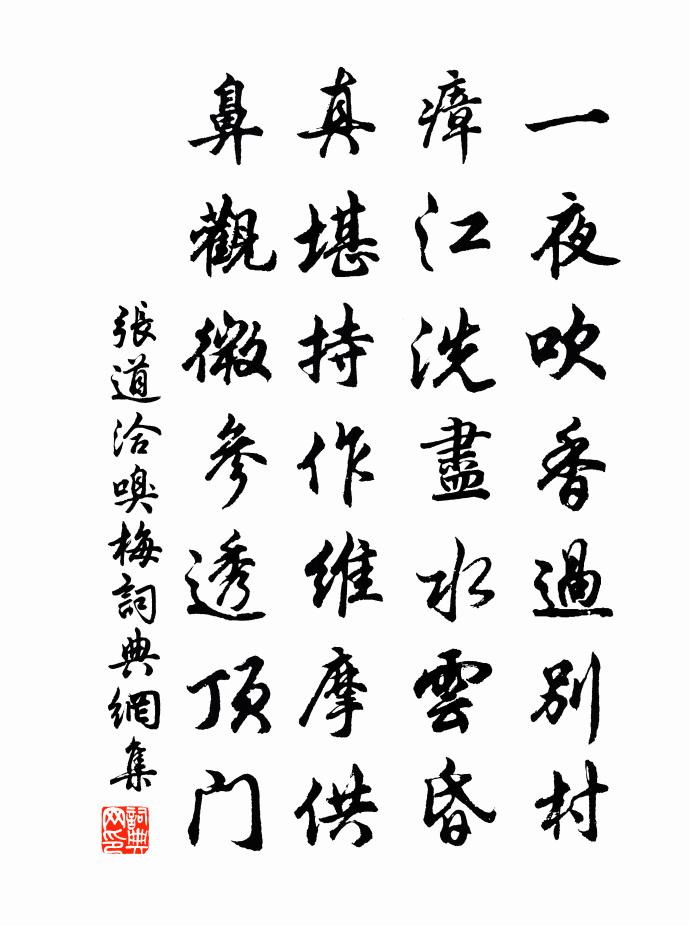 一夜吹香過別村
瘴江洗盡水雲昏
真堪持作維摩供
鼻觀微參透頂门
張道洽嗅梅詞典網集
詞典網印